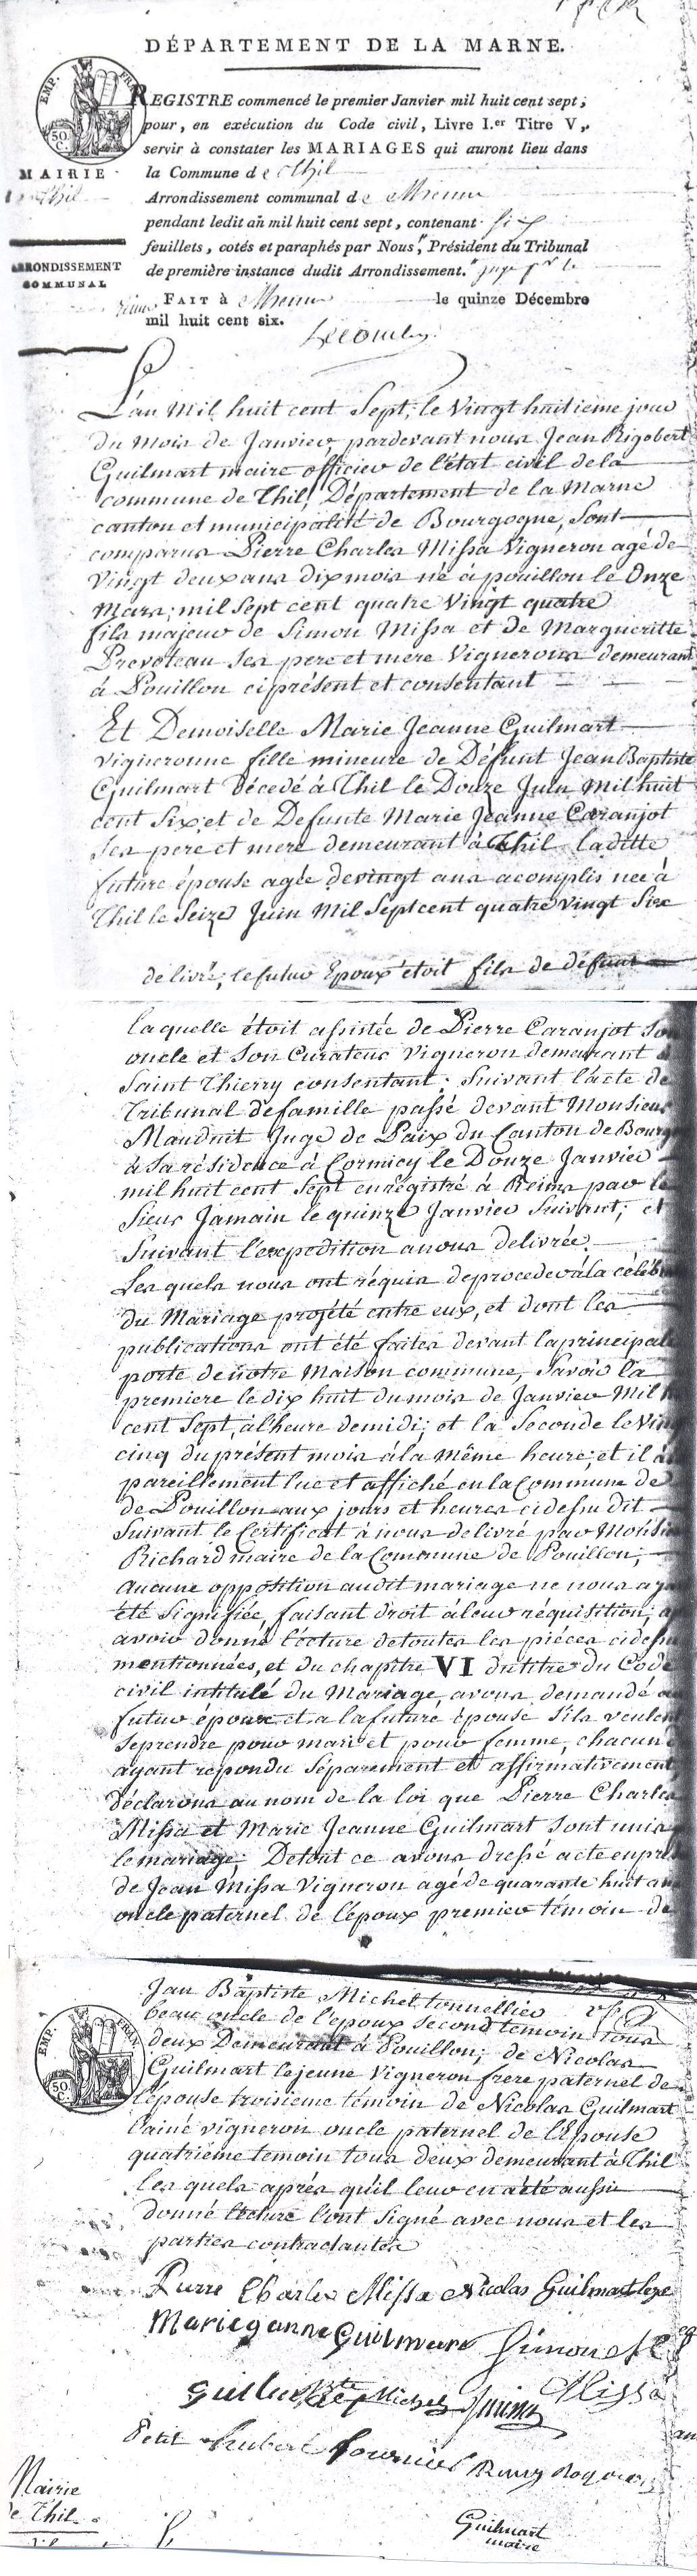 DÉPARTEMENT DE LA MARNE.
EMP. FRAN.
50. C.
REGISTRE commencé le premier Janvier mil huit cent sept,
pour, en exécution du Code civil, Livre I.er Titre V,
servir à constater les MARIAGES qui auront lieu dans
MAIRIE
la Commune de Thil
Thil
Arrondissement communal de Rheims
pendant ledit an mil huit cent sept, contenant six
feuillets, cotés et paraphés par Nous, Président du Tribunal
ARRONDISSEMENT
COMMUNAL
de première instance dudit Arrondissement. juge pr le
FAIT à Rheims le quinze Décembre
mil huit cent six.
L'an Mil huit cent Sept, le Vingt huitieme jour
du mois de Janvier, pardevant nous Jean Rigobert
Guilmart maire officier de l'état civil dela
commune de Thil, Département de la Marne
canton et municipalité de Bourgogne, Sont
comparus Pierre Charles Missa Vigneron agé de
Vingt deux ans dix mois né à pouillon le Onze
Mars, mil Sept cent quatre Vingt quatre
fils majeur de Simon Missa et de Margueritte
Prevoteau Ses pere et mere Vignerons demeurant
à Pouillon ci présent et consentant
Et Demoiselle Marie Jeanne Guilmart
vigneronne fille mineure de Défunt Jean Baptiste
Guilmart Décedé à Thil le Douze Juin Mil huit
cent Six, et de Defunte Marie Jeanne Caranjot
Ses pere et mere demeurant à Thil laditte
future épouse agée devingt ans acomplis neé à
Thil le Seize Juin Mil Septcent quatre vingt Six
de livré, le futur Epoux étoit fils de défunt
la quelle étoit assistée de Pierre Caranjot Son
oncle et Son Curateur Vigneron demeurant à
Saint Thierry consentant; Suivant l'acte de
Tribunal de famille passé devant Monsieur
Mauduit Juge de Paix du Canton de Bourg
à Sa résidence à Cormicy le Douze Janvier
mil huit cent Sept enregistré à Reims par le
Sieur Jamain le quinze Janvier Suivant; et
Suivant l'expedition anous délivrée.
Les quels nous ont réquis deproceder àla céléb
du Mariage projété entre eux, et dont les
publications ont été faites devant la principale
porte denôtre Maison commune, Savoir la
premiere le dix huit dumois de Janvier Mil h
cent Sept, àlheure demidi; et la Seconde le Vin
cinq duprésent mois àla même heure; et il a
pareillement lue et affiché en la Commune de
de Pouillon aux jours et heures ci dessu dit
Suivant le Certificat à nous délivré par Monsieu
Richard maire de la Commune de Pouillon;
aucune opposition audit mariage ne nous aya
été Signifiée, faisant droit àleur réquisition, a
avoir donné lécture detoutes les piéces cidessu
mentionnées, et du chapitre VI du titre du Code
civil intitulé du Mariage, avons demandé au
futur époux et a lafuture Epouse S'ils veulent
Seprendre pour mari et pour femme, chacun
ayant repondu Séparement et affirmativement
Déclarons au nom de la loi que Pierre Charles
Missa et Marie Jeanne Guilmart Sont unis
le mariage; Detout ce avons dressé acte en pré
de Jean Missa Vigneron agé de quarante huit ans
oncle paternel de l'époux premier témoin de
Jan Baptiste Michel tonnellier
beau oncle de l'epoux Second temoin tous
deux Demeurant à Pouillon; de Nicolas
Guilmart lejeune Vigneron frere paternel de
l'épouse troisieme témoin de Nicolas Guilmart
l'ainé vigneron oncle paternel de l'Epouse
quatriéme temoin tous deux demeurant à Thil
les quels aprés qu'il leur en a été aussi
donné lécture l'ont Signé avec nous et les
parties contractantes
Pierre Charles Missa Nicolas Guilmart
Marie ganne Guilmart Simon
Michel Missa
Petit Hubert fournier Remy
EMP. FRAN.
50. C.
Mairie
de Thil
Guilmart
maire